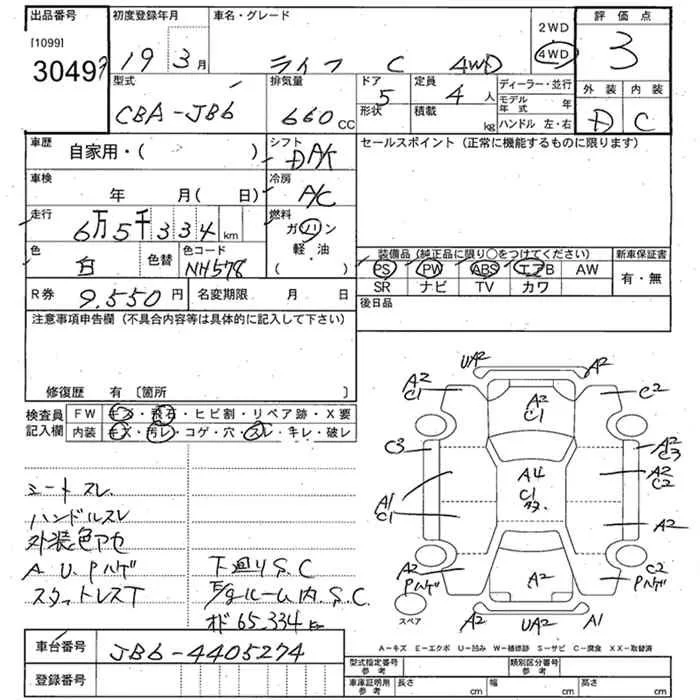 出品番号 初度登録年月 車名・グレード 2WD 評価点
[1099] 19年 3月 ライフ C 4WD 4WD 3
3049
型式 排気量 ドア 定員 ディーラー・並行 外装 内装
CBA-JB6 660cc 5 4人 モデル年式 年 D C
形状 積載 kg ハンドル 左・右
車歴 自家用・( ) シフト DA/T セールスポイント (正常に機能するものに限ります)
車検 年 月( 日) 冷房 A/C
走行 6万5千334km 燃料 ガソリン
色 白 色替 色コード NH578 軽・油 ( ) 装備品 (純正品に限り○をつけてください) 新車保証書
PS PW ABS エアB AW 有・無
R券 9.550円 名変期限 月 日 SR ナビ TV カワ
注意事項申告欄 (不具合内容等は具体的に記入して下さい) 後日品
修復歴 有 〔箇所 〕
検査員 FW キズ・飛石・ヒビ割・リペア跡・X要
記入欄 内装 キズ・汚レ・コゲ・穴・スレ・キレ・破レ
シートスレ
ハンドルスレ
外装色アセ
A U.Pハゲ 下廻りS.C
スタットレスT E/gルーム内.S.C
オド65.334km
UA2 A2
A2 C1 A2 C1 C2
C3 A2 C3
A4 C1 A2 C2
A1 C1 A2
A2 Pハゲ A2 C2 Pハゲ
スペア A2 UA2 A1
A-キズ E-エクボ U-凹み W-補修跡 S-サビ C-腐食 XX-取替済
車台番号 JB6-4405274 型式指定番号 参考 類別区分番号 参考
登録番号 車庫証明用 参考 長さ cm 幅 cm 高さ cm